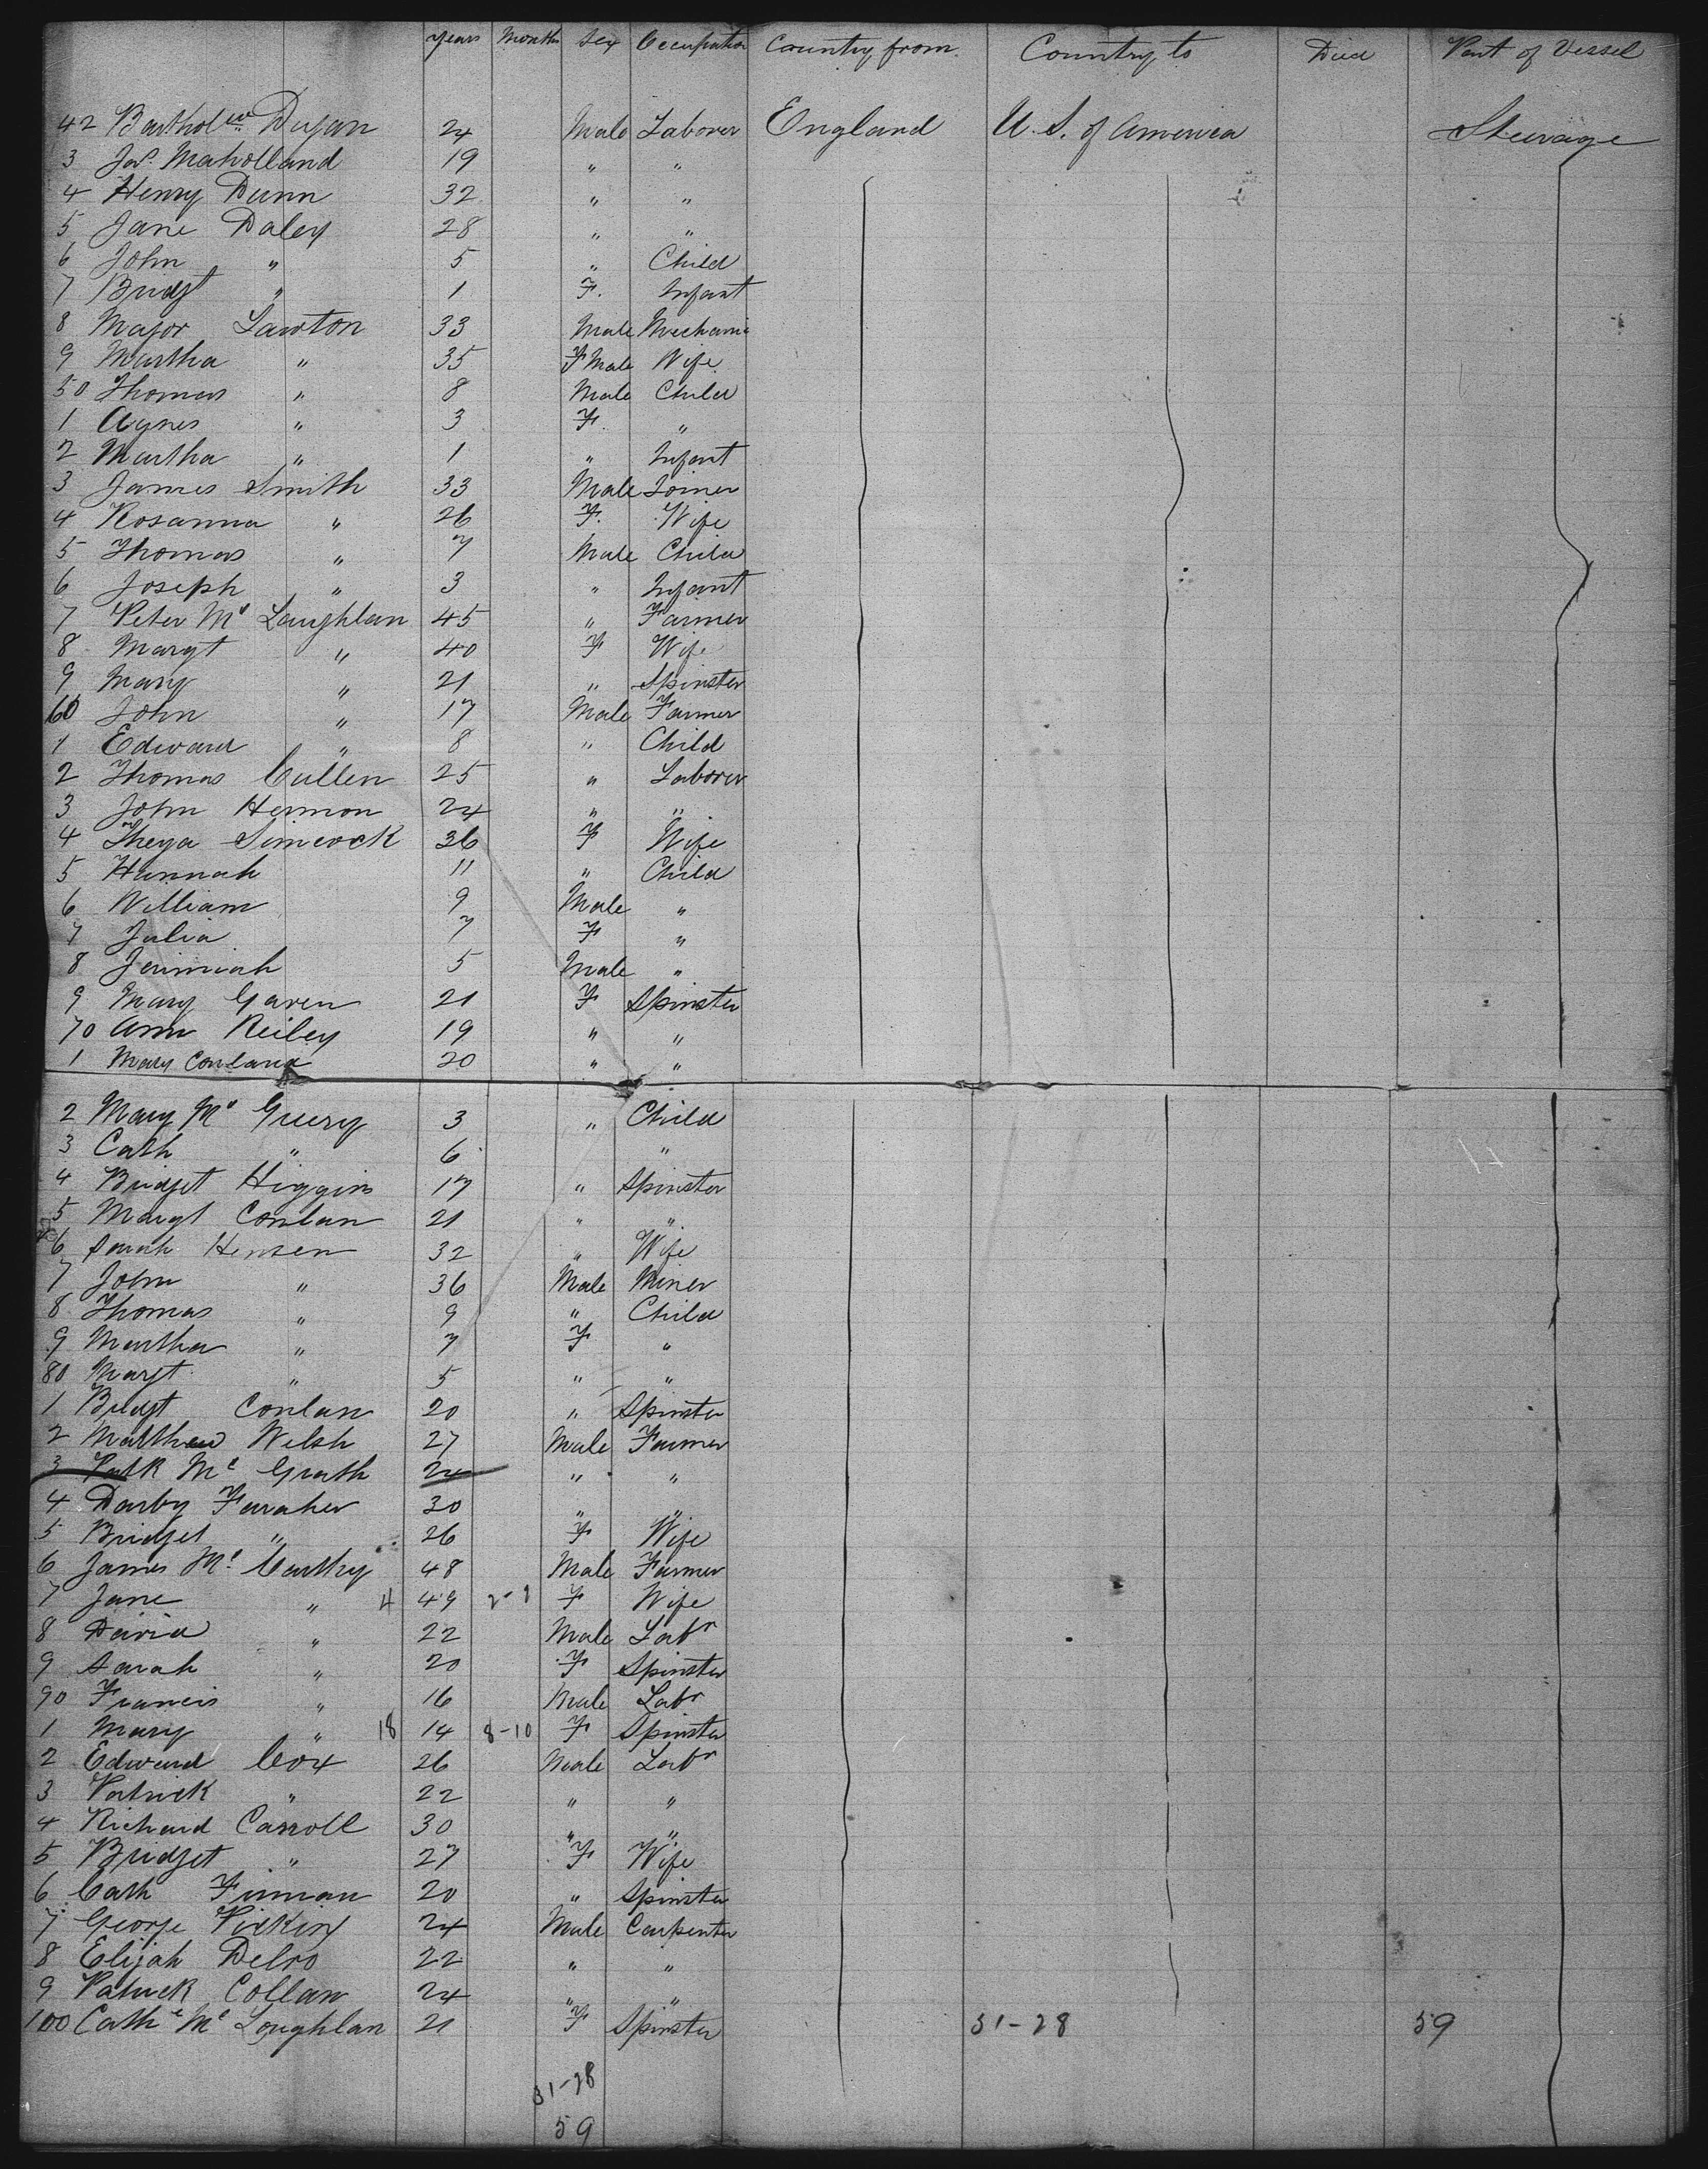 Years Months Sex Occupation Country from Country to Died Part of Vessel
42 Bartholew Dugan 24 Male Laborer England U. S. of America Steerage
3 Jas. Maholland 19 " "
4 Henry Dunn 32 " "
5 Jane Daley 28 " "
6 John " 5 " Child
7 Bridgt " 1 F. Infant
8 Major Lawton 33 Male Mechanic
9 Martha " 35 FMale Wife
50 Thomas " 8 Male Child
1 Agnes " 3 F. "
2 Martha " 1 " Infant
3 James Smith 33 Male Joiner
4 Rosanna " 26 F. Wife
5 Thomas " 7 Male Child
6 Joseph " 3 " Infant
7 Peter Mc Laughlan 45 " Farmer
8 Margt " 40 F Wife
9 Mary " 21 " Spinster
60 John " 17 Male Farmer
1 Edward " 8 " Child
2 Thomas Cullen 25 " Laborer
3 John Hermon 24 " "
4 Simcock 36 F Wife
5 Hannah 11 " Child
6 William 9 Male "
7 Julia 7 F "
8 Jerimiah 5 Male "
9 Mary Gaven 21 F Spinster
70 Ann Reiley 19 " "
1 Mary Conland 20 " "
2 Mary Mc Greery 3 " Child
3 Cath " 6 "
4 Bridget Higgins 17 " Spinster
5 Margt Conlan 21 " "
6 Sarah Hensen 32 " Wife
7 John " 36 Male Miner
8 Thomas " 9 " Child
9 Martha " 7 F "
80 Margt " 5 " "
1 Bridgt Conlan 20 " Spinster
2 Matthew Welsh 27 Male Farmer
3 Patk Mc Grath 24 " "
4 Darby Faraher 30 " "
5 Bridget " 26 F Wife
6 James Mc Carthy 48 Male Farmer
7 Jane " 4 49 2-1 F Wife
8 David " 22 Male Labr
9 Sarah " 20 F Spinster
90 Francis " 16 Male Labr
1 Mary " 18 14 8-10 F Spinster
2 Edward Cox 26 Male Labr
3 Patrick " 22 " "
4 Richard Carroll 30 " "
5 Bridget " 27 F Wife
6 Cath Firman 20 " Spinster
7 George 24 Male Carpenter
8 Elijah Delro 22 " "
9 Patrick Collan 24 " "
100 Cathe Mc Loughlan 21 F Spinster 31-28 59
31-28
59